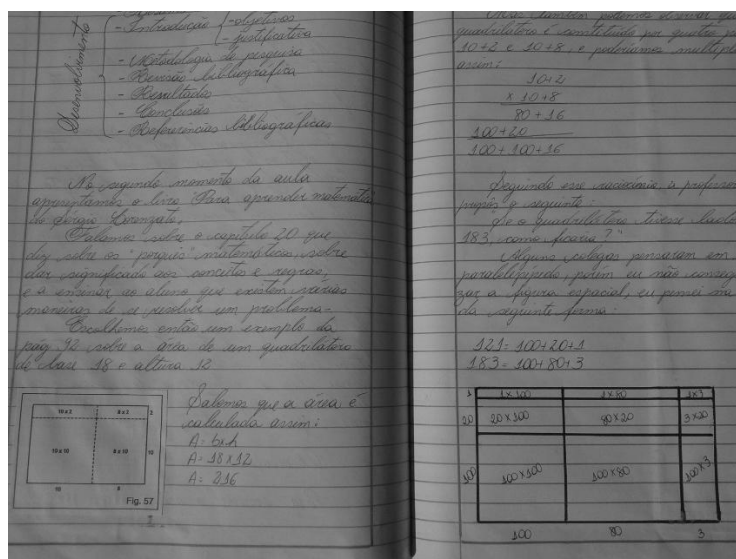 - Introdução - objetivos
- justificativa
- Metodologia de pesquisa
- Revisão bibliografica
- Resultados
- Conclusão
- Referências bibliograficas
Desenvolvimento
No segundo momento da aula
apresentamos o livro Para aprender matemática
do Sergio Lorenzato,
Falamos sobre o capítulo 20 que
diz sobre os "porquês" matemáticos, sobre
dar significado aos conceitos e regras,
e a ensinar ao aluno que existem várias
maneiras de se resolver um problema.
Escolhemos então um exemplo da
pag 92 sobre a área de um quadrilatero
de base 18 e altura 12
10 x 2 8 x 2 2
10 x 10 8 x 10 10
10 8
Fig. 57
Sabemos que a área é
calculada assim:
A= bxh
A= 18x12
A= 216
também podemos observar que
quadrilatero é constituído por quatro
10+2 e 10+8, e poderiamos
assim:
10+2
x 10+8
80+16
100+20
100+100+16
Seguindo esse raciocínio, a
propôs o seguinte:
"Se o quadrilatero tivesse lados
183, como ficaria?"
Alguns colegas pensaram em
paralelepipedo, porém eu não
a figura espacial, eu pensei
da seguinte forma:
121= 100+20+1
183= 100+80+3
1 1x100 1x80 1x3
20 20x100 80x20 3x20
100 100x100 100x80 100x3
100 80 3